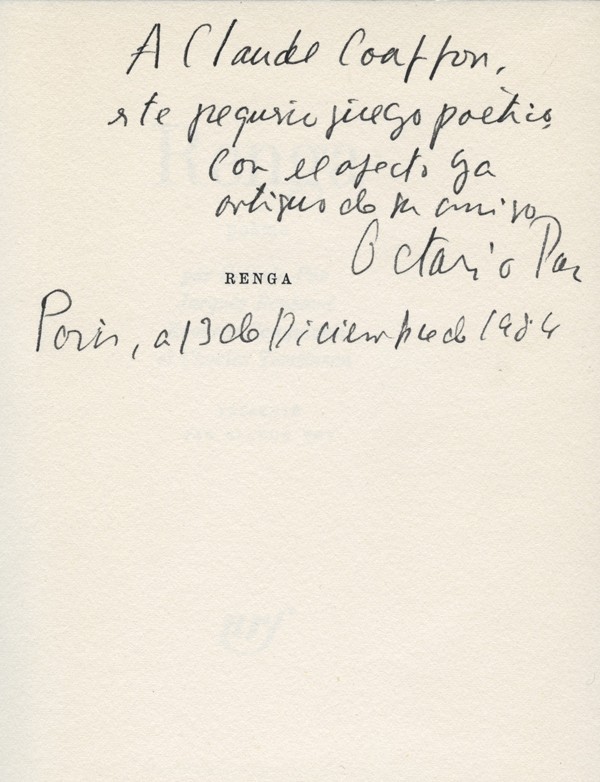 A Claude Couffon,
este pequeño juego poético,
con el afecto ya
antiguo de su amigo
Octavio Paz
RENGA
París, a 13 de Diciembre de 1984
nrf